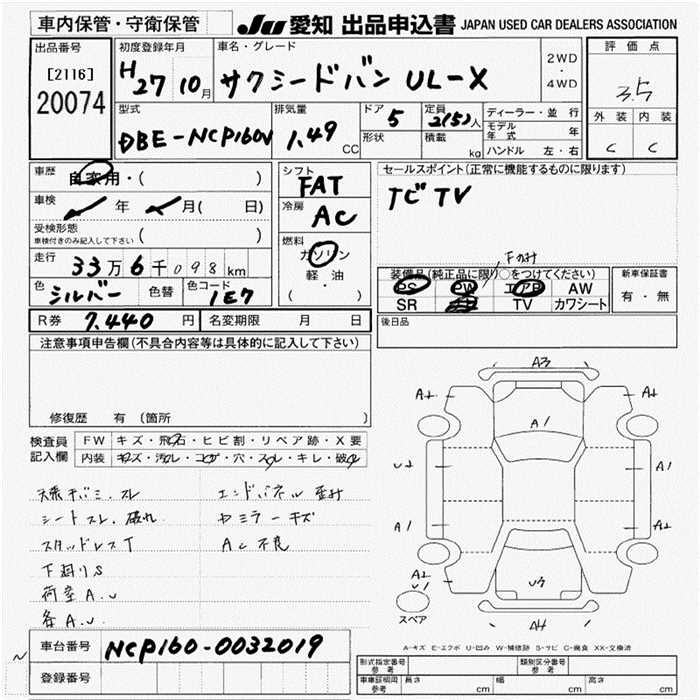 車内保管・守衛保管 JU 愛知 出品申込書 JAPAN USED CAR DEALERS ASSOCIATION
出品番号 初度登録年月 車名・グレード 評価点
[2116] H27 10月 サクシードバン UL-X 2WD・4WD 3.5
20074
型式 排気量 ドア 5 定員 2(5)人 ディーラー・並行 外装 内装
DBE-NCP160V 1.49 CC 形状 積載 kg モデル年式 年 C C
ハンドル 左・右
車歴 自家用・( ) シフト FAT セールスポイント(正常に機能するものに限ります)
車検 年 月( 日) 冷房 AC ナビ TV
受検形態 ( )
車検付きのみ記入して下さい
燃料 ガソリン
軽油
( ・ )
走行 33万6千098km Fのみ
装備品(純正品に限り○をつけてください) 新車保証書
色 シルバー 色替 色コード 1E7 PS PW エアB AW 有・無
SR TV カワシート
R券 7,440円 名変期限 月 日 後日品
注意事項申告欄(不具合内容等は具体的に記入して下さい)
修復歴 有 (箇所
検査員記入欄 FW キズ・飛石・ヒビ割・リペア跡・X要
内装 キズ・汚れ・コゲ・穴・スレ・キレ・破れ
シートスレ、破れ
スタッドレスT
下廻りS
荷室A.U
エンドパネル
ヤミラーキズ
AC不良
A3
A2 A2
A1
U2 A1
A1 A2
A2
U1
U3
A4
スペア
A-キズ E-エクボ U-凹み W-補修跡 S-サビ C-腐食 XX-交換済
車台番号 NCP160-0032019
登録番号
型式指定番号 参考 類別区分番号 参考
車庫証明用 参考 長さ cm 幅 cm 高さ cm